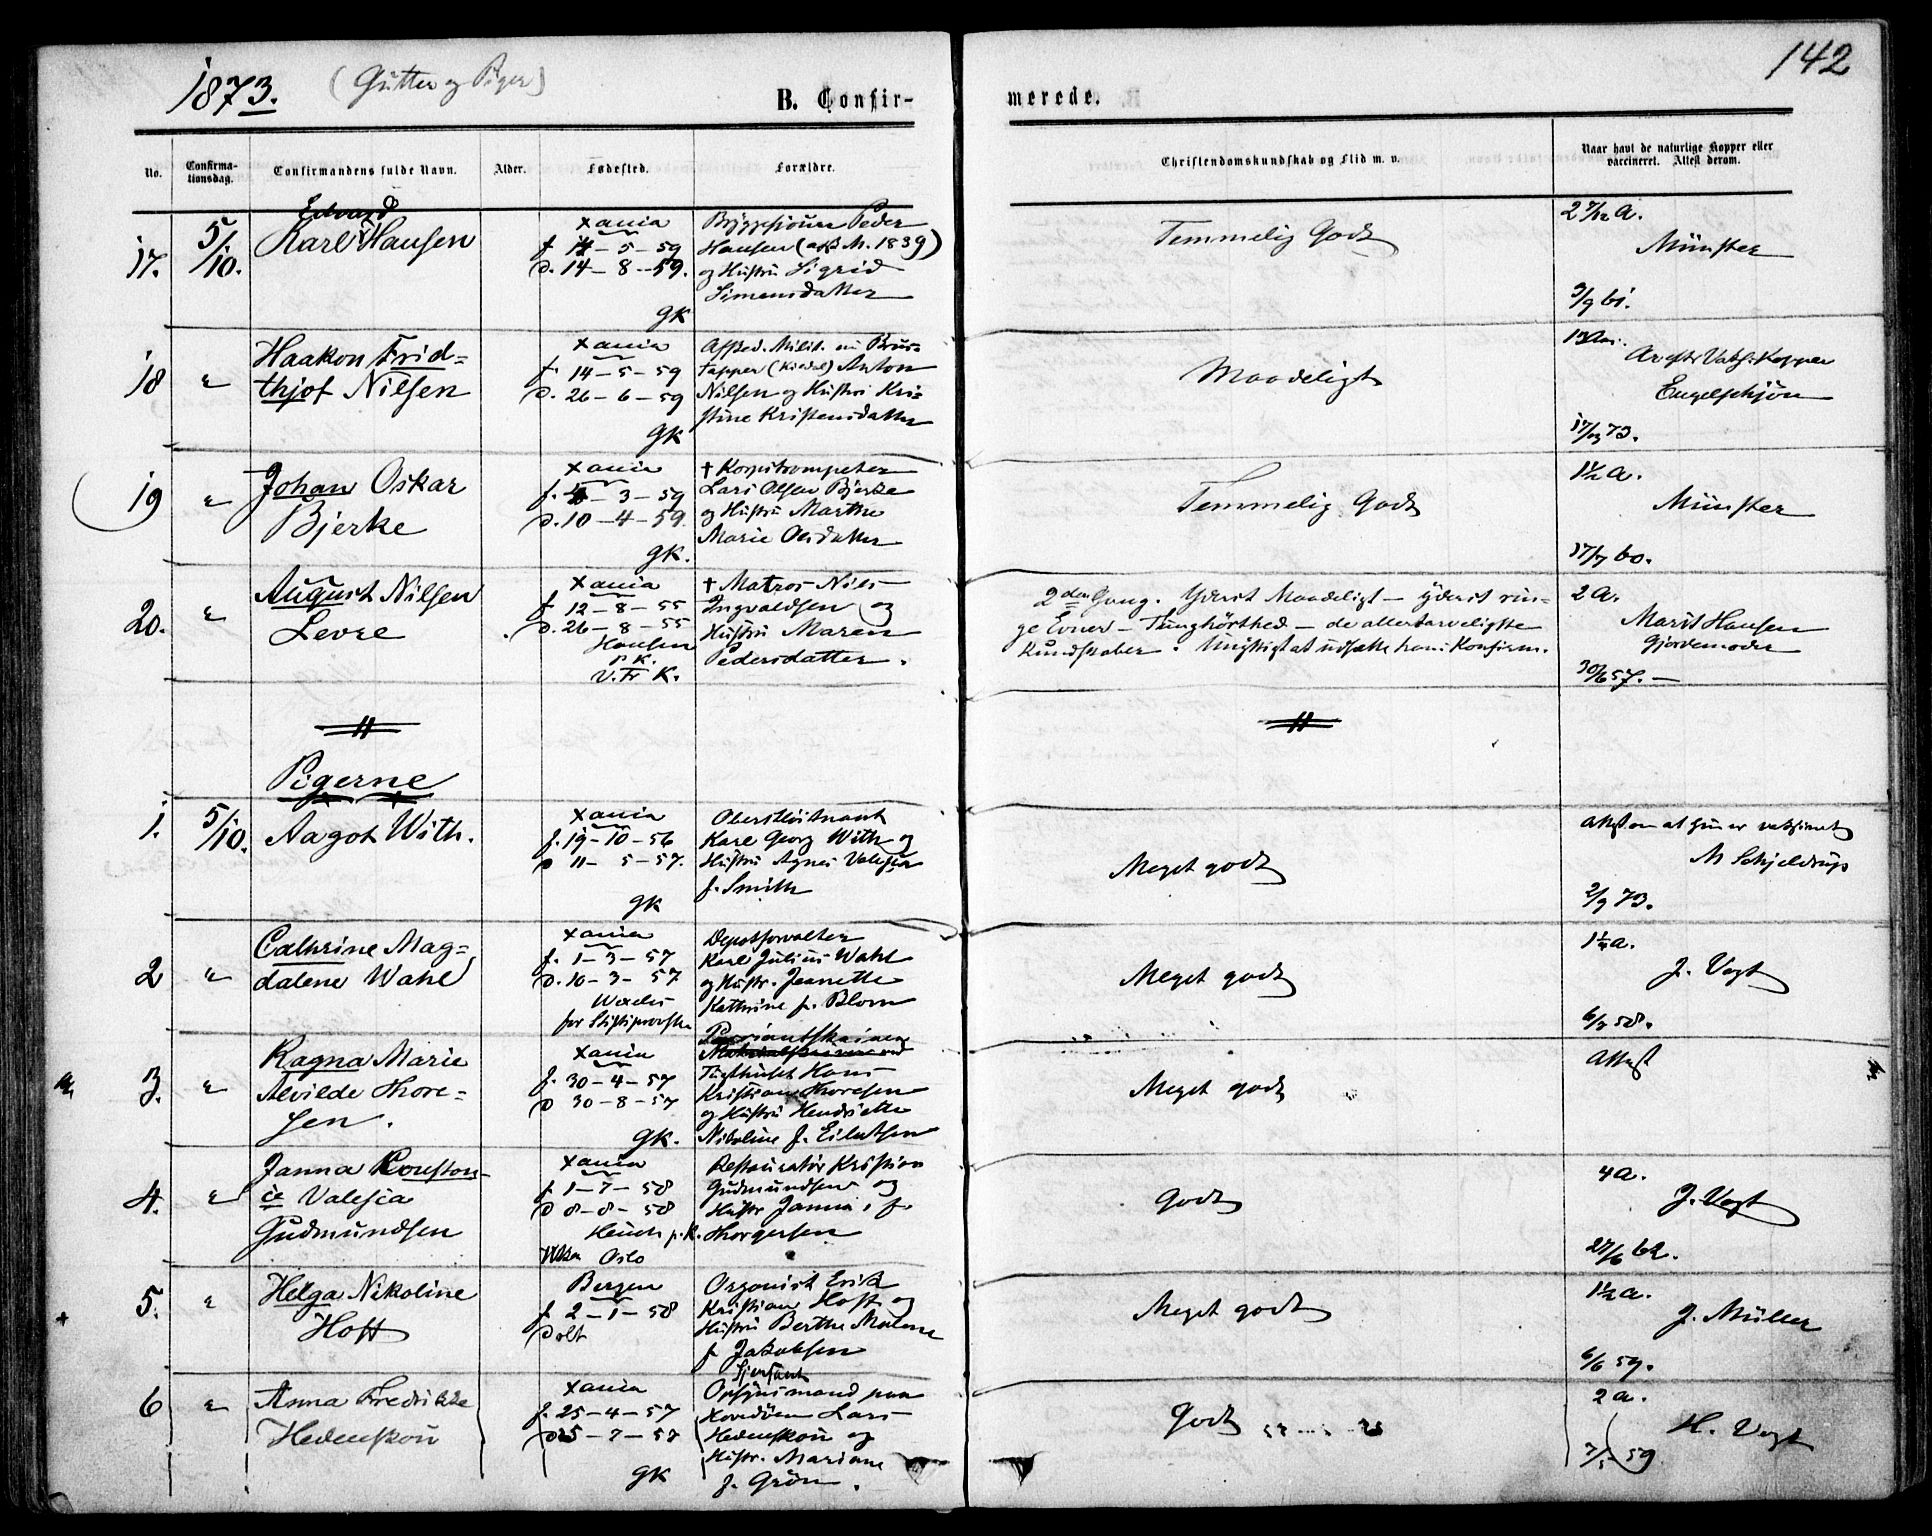 1873. (Gutter og Piger) 142
B. Confir- merede.
No. Confirma-tionsdag. Confirmandens fulde Navn. Alder. Fødested. Forældre. Christendomskundskab og Flid m. v. Naar havt de naturlige Kopper eller vaccineret. Attest derom.
17. 5/10. Karl Edvard Hansen
Xania
f. 14-5-59
d. 14-8-59.
GK
Peder
Hansen (afsk. M. 1839)
og Hustru Sigrid
Simensdatter
Temmelig Godt
2 7/12 A.
Münster
3/9 61.
18 " Haakon Frid-
thjof Nilsen
Xania
f. 14-5-59
d. 26-6-59
GK
Afsked. Milit. nu Brus-
tapper Anton
Nilsen og Hustru Kri-
stine Kristensdatter
Maadeligt
Engelschjøn
17/9 73.
19 " Johan Oskar
Bjerke
Xania
f. 4-3-59
d. 10-4-59.
GK.
† Korpstrompeter
Lars Olsen Bjerke
og Hustru Marthe
Marie Olsdatter
Temmelig Godt
1½ A.
Münster
17/7 60.
20. " August Nilsen
Levre
Xania
f 12-8-55
d. 26-8-55
Hansen
p. K.
V. Fr K.
† Matros Nils
Ingvaldsen og
Hustru Maren
Pedersdatter.
2den Gang. Yderst Maadeligt - yderst rin-
ge Evner - Tunghørthed - de allertarveligste
Kundskaber. Unyttigt at udsætte hans Konfirm.
2 A.
Marit Hansen
Gjordemoder
30/6 57.
Pigerne
1. 5/10. Aagot With.
Xania
f. 19-10-56
d 11-5-57.
GK
Oberstløitnant
Karl Georg With og
Hustru Agnes Valesca
f. Smith
Meget godt
Attest om at hun er vaksineret
M Schjeldrup
2/9 73.
2 " Cathrine Mag-
dalene Wahl
Xania
f. 1-3-57
d. 10-3-57
for Stiftsprovsten
Depotforvalter
Karl Julius Wahl
og Hustr. Jeanette
Kathrine f. Blom
Meget godt
1¼ A.
J. Vogt
6/7 58.
3. " Ragna Marie
Alvilde Thore-
sen.
Xania
f. 30-4-57
d 30-8-57
GK.
Tugthuset Hans
Kristian Thoresen
og Hustru Hendriette
Nikoline f. Eilertsen
Meget godt
Attest
4. " Janna Konstan-
ce Valesca
Gudmundsen
Xania
f 1-7-58
d 8-8-58
Heuch p. K.
Oslo
Restauratør Kristian
Gudmundsen og
Hustr Janna f.
Thorgersen
Godt
4 A.
J. Vogt
27/6 62.
5. " Helga Nikoline
Hoff
Bergen
f. 2-1-58
døbt
Organist Erik
Kristian Hoff og
Hustru Berthe Malene
f Jakobsen
Meget godt
1½ A.
J. Müller
6/6 59.
6 " Anna Fredrikke
Hedenskou
Xania
f. 25-4-57
d 5-7-57
GK
Sjersant
Opsynsmand paa
Hovedøen Lars
Hedenskou og
Hustr. Mariane
f. Grøn.
Godt
2 A.
H. Vogt
7/5 59